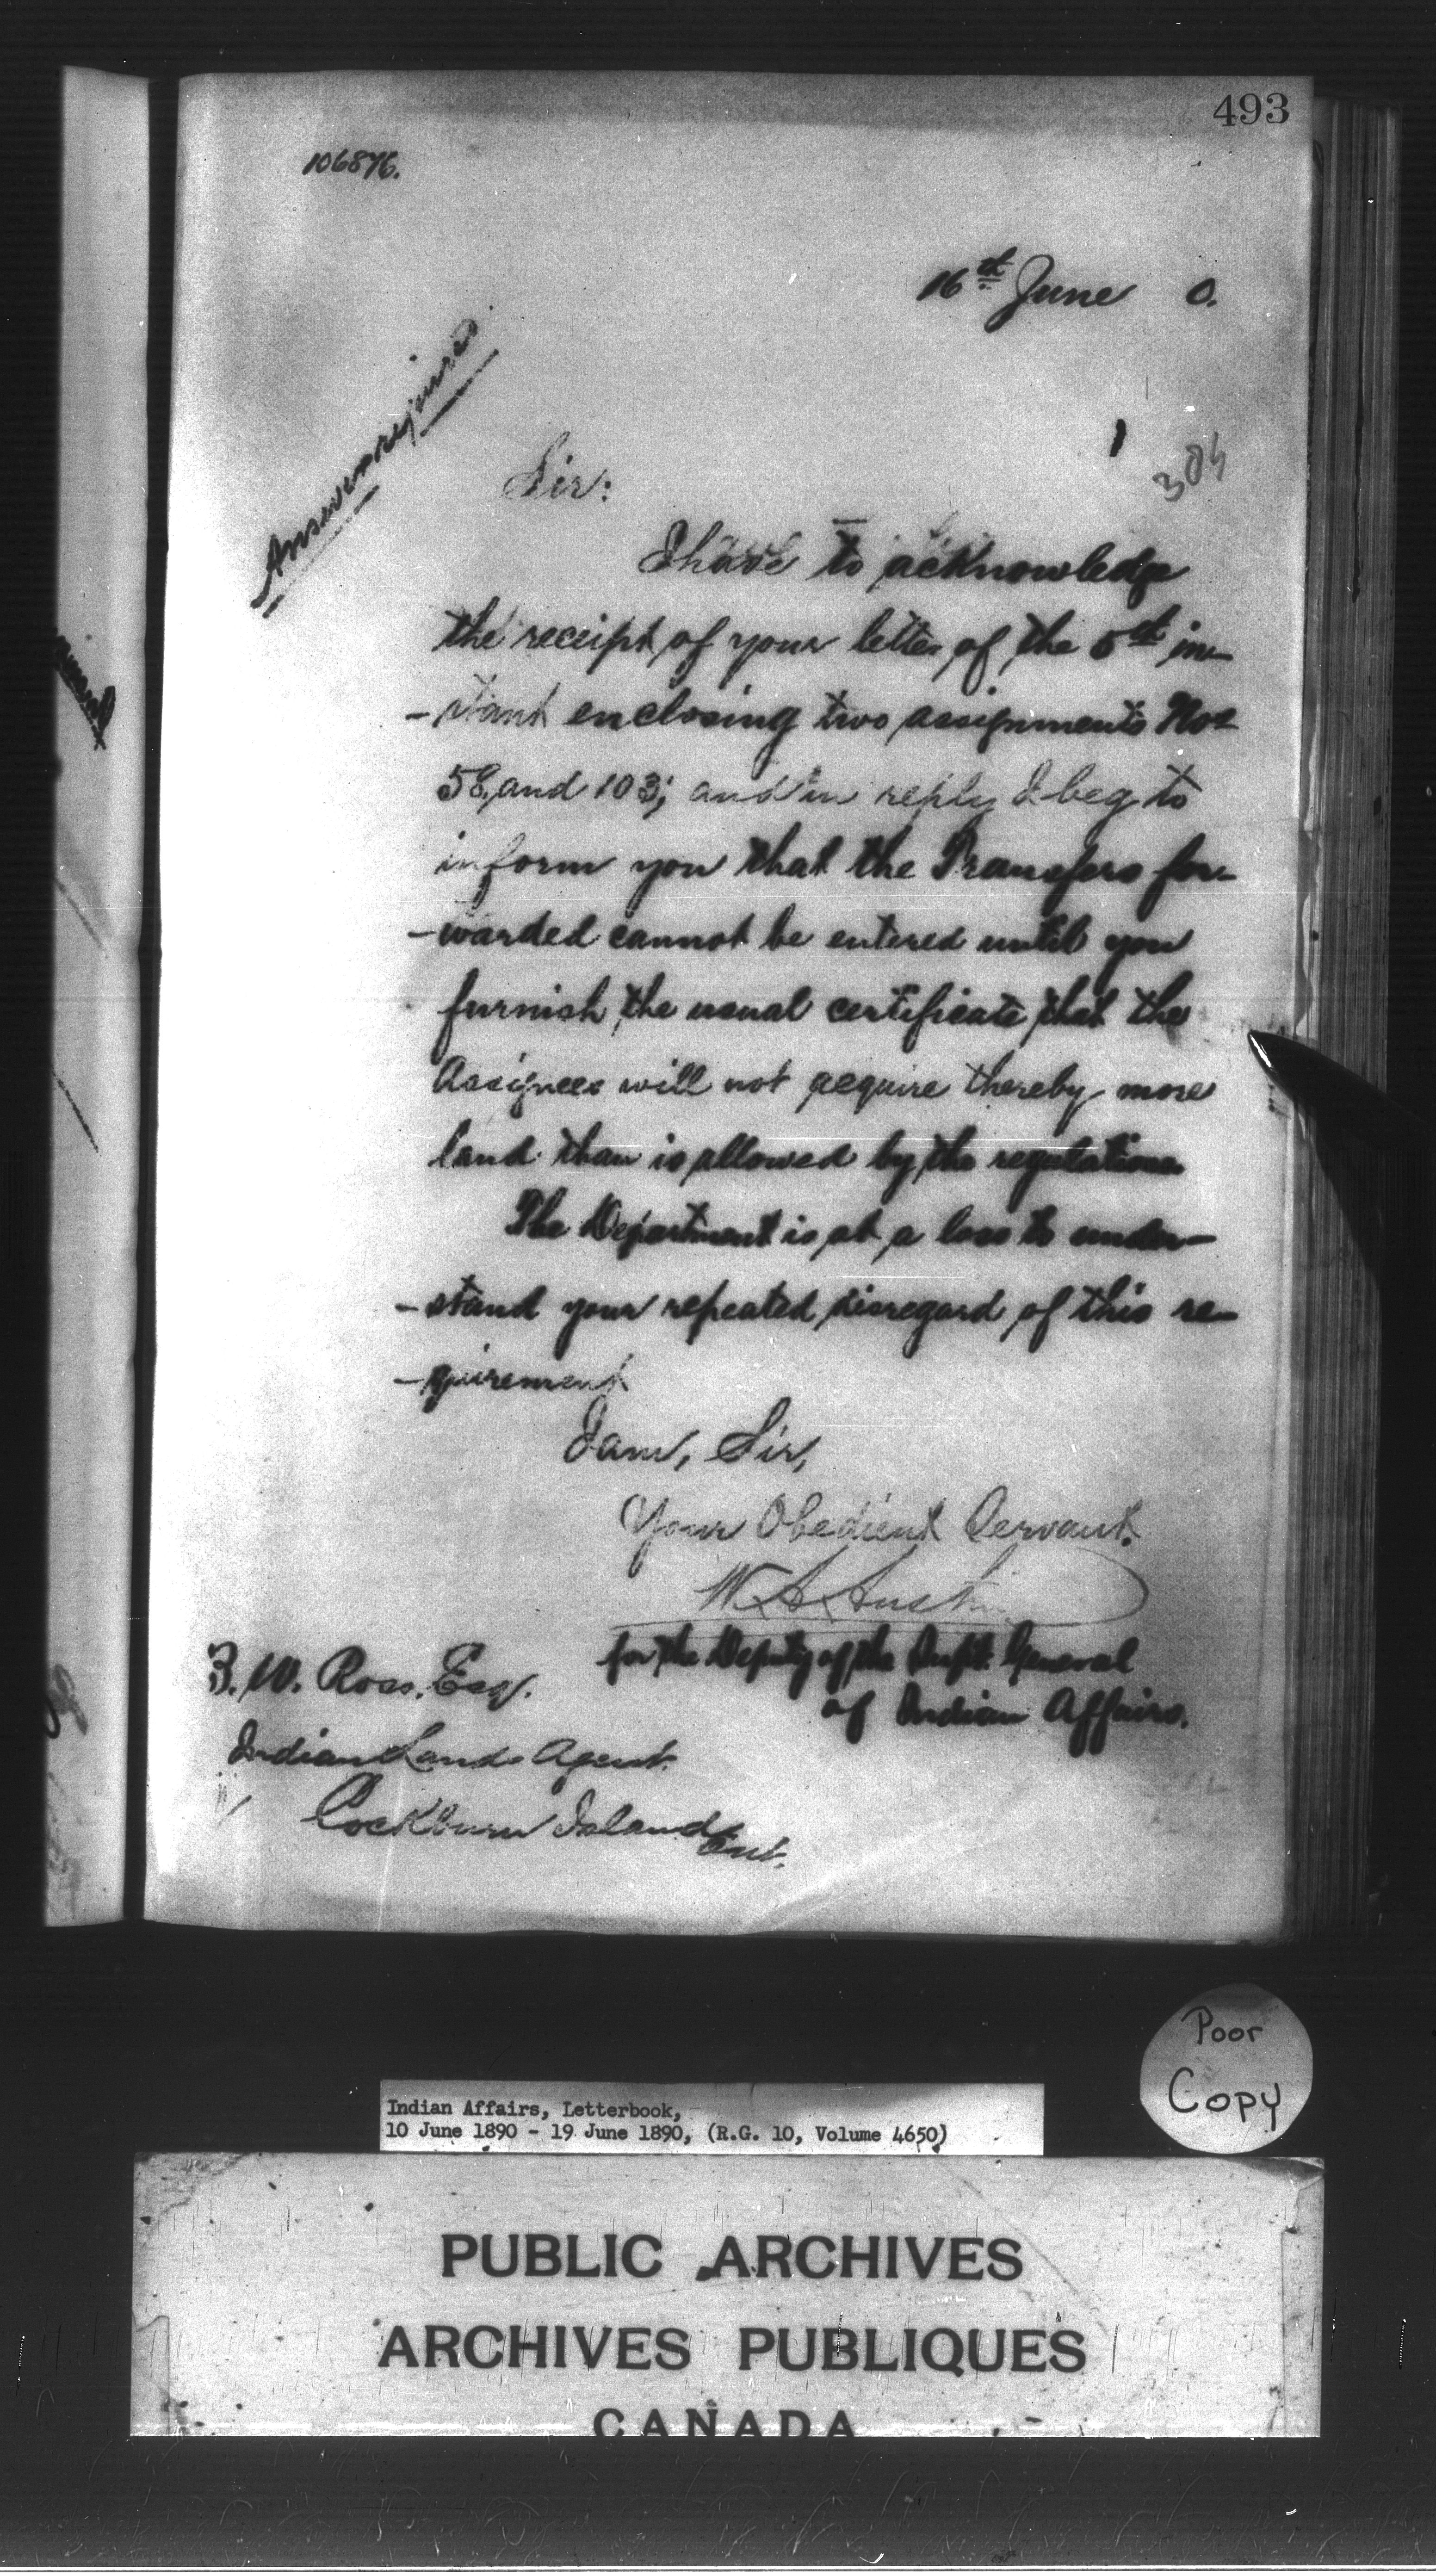 493
106876.
16th June 0.
Answer required
384
Sir:
I have to acknowledge
the receipt of your letter of the 5th in-
-stant enclosing two assignments Nos
58, and 103; and in reply I beg to
inform you that the Transfers for-
-warded cannot be entered until you
furnish the usual certificate that the
Assignees will not acquire thereby more
land than is allowed by the regulations.
The Department is at a loss to under-
-stand your repeated disregard of this re-
-quirement
I am, Sir,
Your Obedient Servant.
W A Austin
for the Deputy of the Supt. General
of Indian Affairs.
B. W. Ross. Esq.
Indian Lands Agent.
Cockburn Island
Ont.
Poor
Copy
Indian Affairs, Letterbook,
10 June 1890 - 19 June 1890, (R.G. 10, Volume 4650)
PUBLIC ARCHIVES
ARCHIVES PUBLIQUES
CANADA